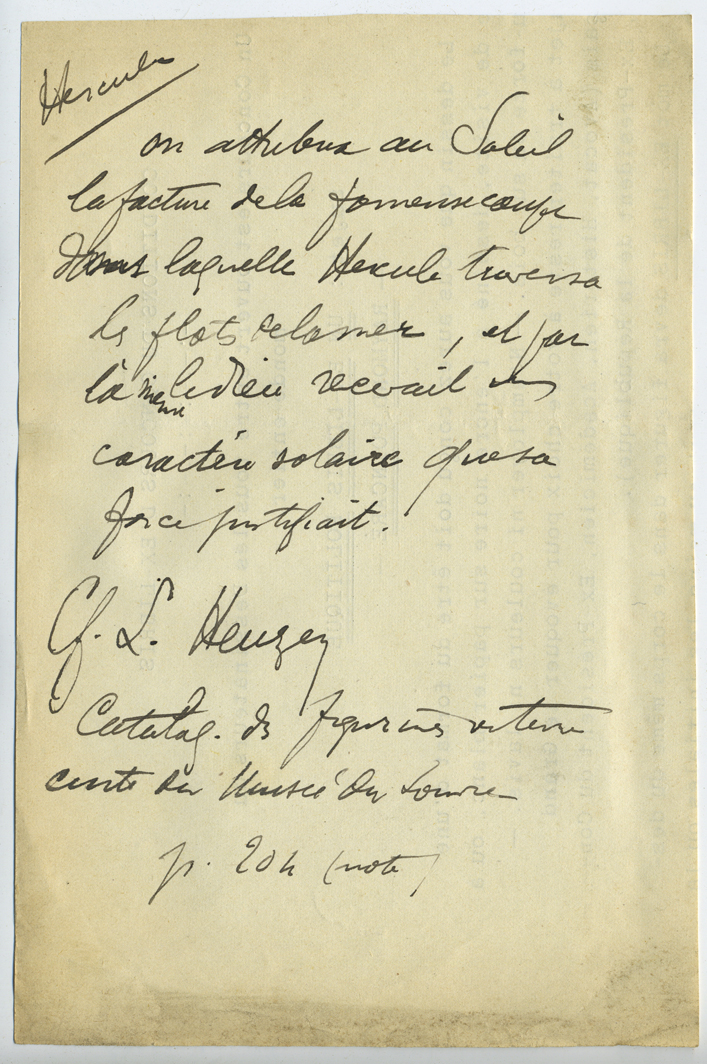 Hercule
on attribua au Soleil
la facture de la fameuse coupe
dans laquelle Hercule traversa
les flots de la mer, et par
là même le dieu recevait un
caractère solaire que sa
force justifiait.
Cf. L. Heuzey
Catalog. des figurines en terre
cuite du Musée du Louvre
p. 204 (note)